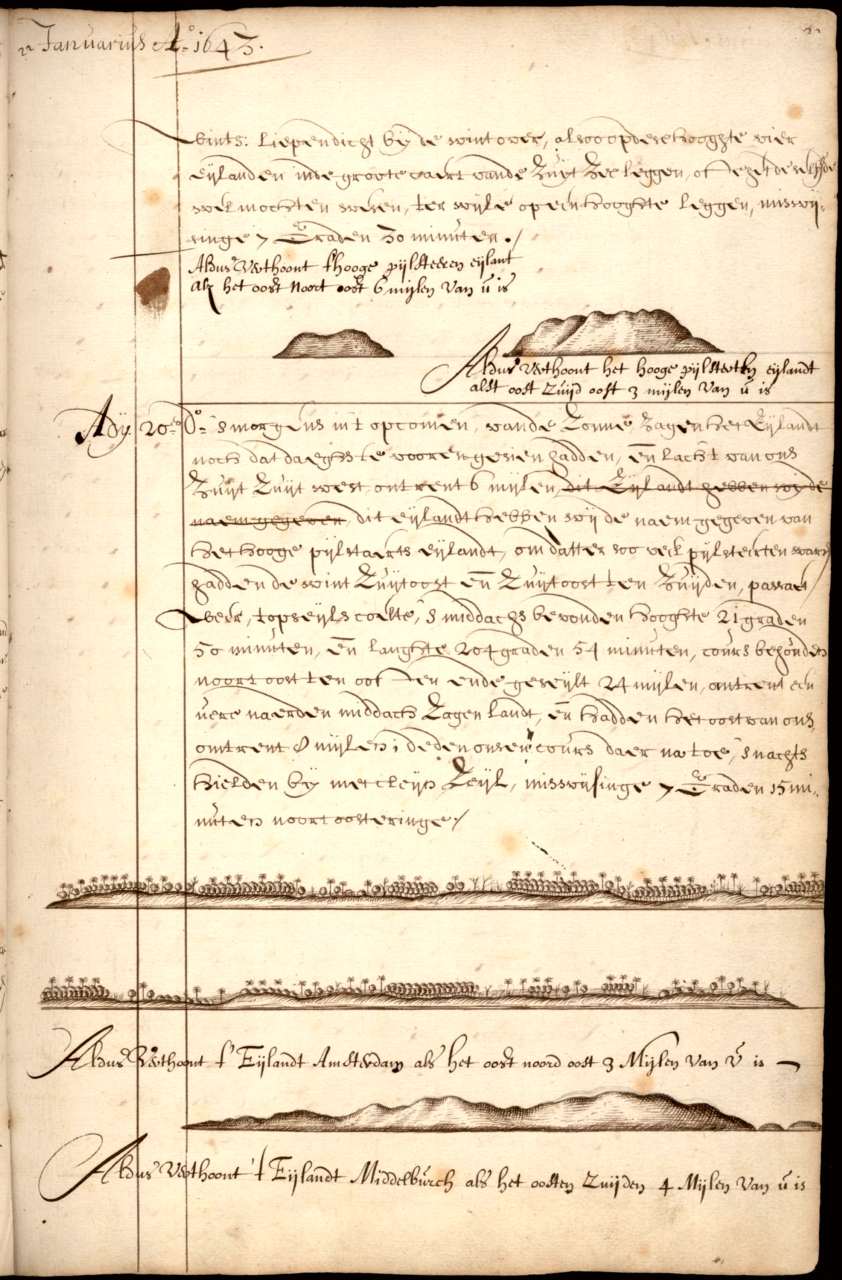 in Januarius Aº 1643.
vints: liepen dicht by de wint over, alsoo op dese hooghte vier
Eijlanden inde groote caert vande Zuyt Zee leggen, oft
wel mochten wesen, ter wijle op een hooghte leggen, miswij-
singe 7 Graden 30 minuten ./
Aldus Verthoont t'hooge pijlsteeren eijlant
als het oost noort oost 6 mijlen Van ū is
Aldus Verthoont het hooge pijlsteerten eijlandt
alst oost Zuijd oost 3 mijlen Van ū is
Ady 20en Do= 's morgens int opcomen, vande Zonne Zagen het Eijlandt
noch dat daeghs te vooren gesien hadden, en lacht van ons
Zuyt Zuyt west ontrent 6 mijlen, dit Eijlandt hebben wij de
naem gegeven, dit eijlandt hebben wij de naem gegeven van
het hooge pijlstaerts Eijlandt, om datter soo veel pijlsteerten waren
hadden de wint Zuijtoost en Zuijtoost ten Zuijden, passaet
weer, topseijls coelte, 's middachs bevonden hooghte 21 graden
50 minuten, en langhte 204 graden 54 minuten, cours behouden
noort oost ten oosten ende geseylt 24 mijlen, ontrent een
uere naerden middach Zagen landt, en hadden het oost van ons
omtrent 8 mijlen; deden onsen cours daer na toe, 's nachts
hielden by met cleijn Zeijl, miswijsinge 7 Graden 15 mi-
nuten noort oosteringe ./
Aldus Verthoont t' Eijlandt Amsterdam als het oost noord oost 3 Mijlen Van ū is
Aldus Verthoont 't Eijlandt Middelbūrch als het oosten Zuijden 4 Mijlen Van ū is